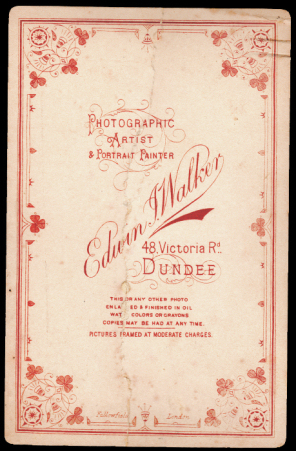 PHOTOGRAPHIC
ARTIST
& PORTRAIT PAINTER
Edwin J. Walker
48, Victoria Rd.
DUNDEE
THIS OR ANY OTHER PHOTO
ENLA ED & FINISHED IN OIL
WAT COLORS OR CRAYONS
COPIES MAY BE HAD AT ANY TIME.
PICTURES FRAMED AT MODERATE CHARGES.
London